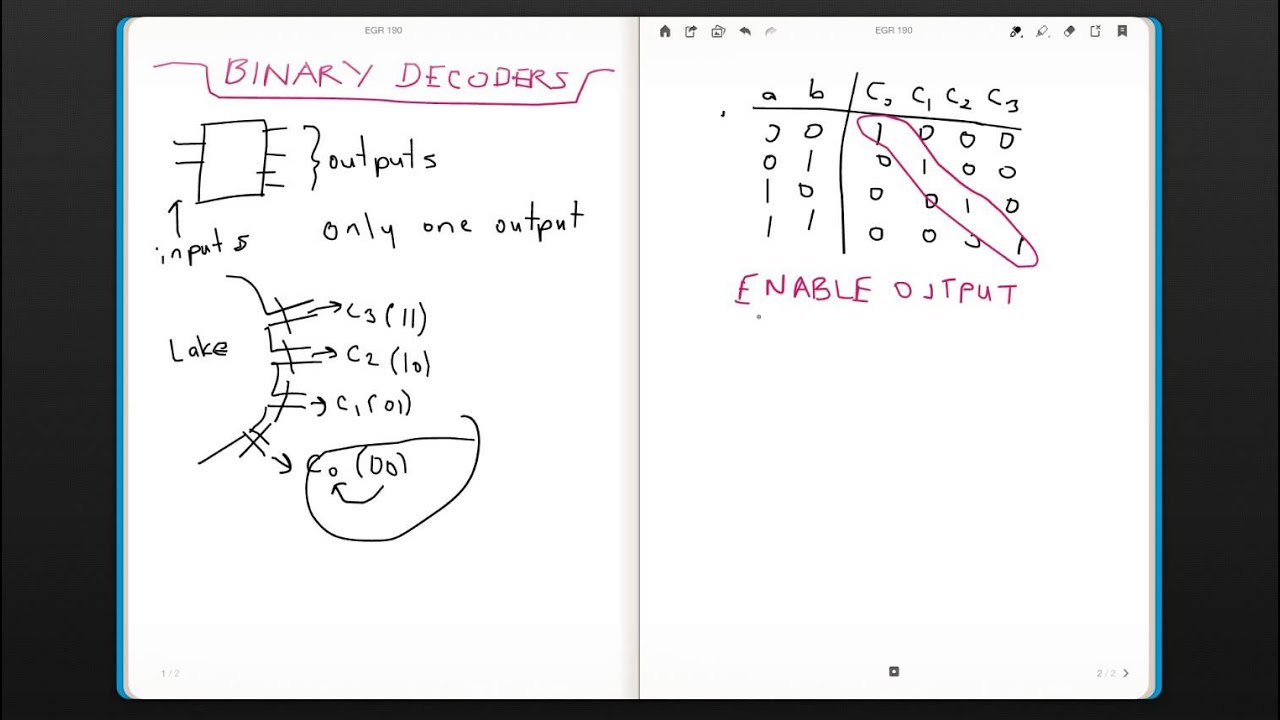 EGR 190
BINARY DECODERS
outputs
only one output
inputs
Lake
C3 (11)
C2 (10)
C1 (01)
C0 (00)
1 / 2
EGR 190
a b C0 C1 C2 C3
0 0 1 0 0 0
0 1 0 1 0 0
1 0 0 0 1 0
1 1 0 0 0 1
ENABLE OUTPUT
2 / 2